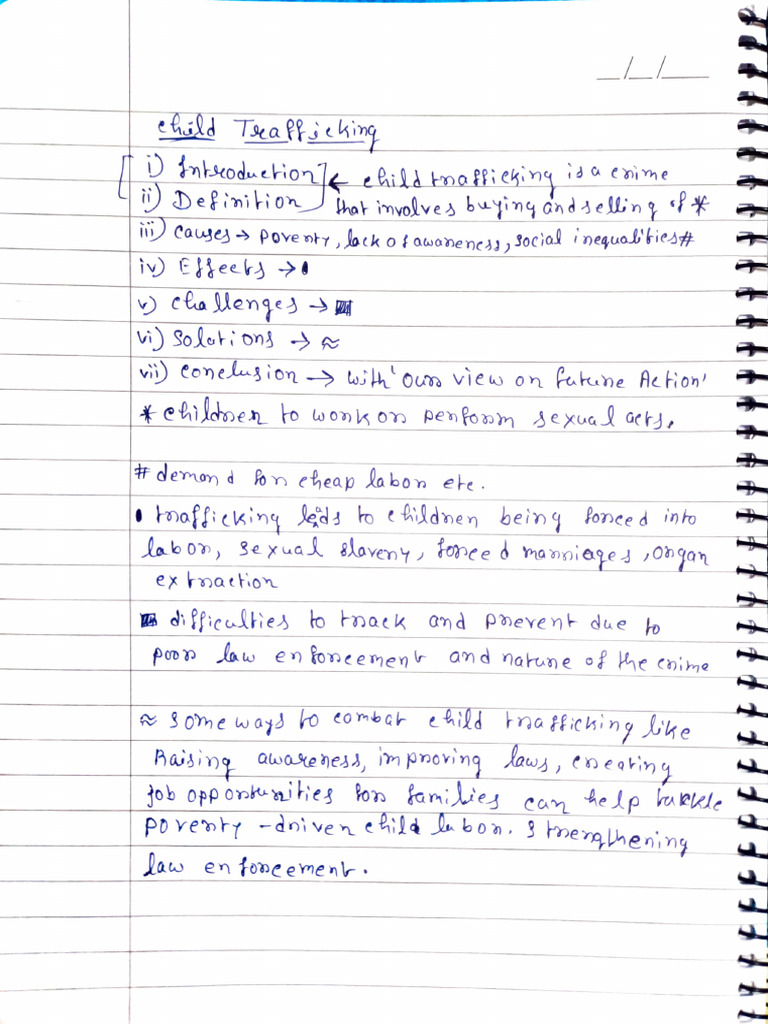 __/__/____
Child Trafficking
i) Introduction ← child trafficking is a crime
ii) Definition that involves buying and selling of *
iii) causes → poverty, lack of awareness, social inequalities #
iv) Effects →
v) challenges →
vi) Solutions → ≈
vii) conclusion → with 'our view on future Action'
* children to work or perform sexual acts.
# demand for cheap labor etc.
trafficking leads to children being forced into
labor, sexual slavery, forced marriages, organ
extraction
difficulties to track and prevent due to
poor law enforcement and nature of the crime
≈ some ways to combat child trafficking like
Raising awareness, improving laws, creating
job opportunities for families can help tackle
poverty - driven child labor. Strengthening
law enforcement.